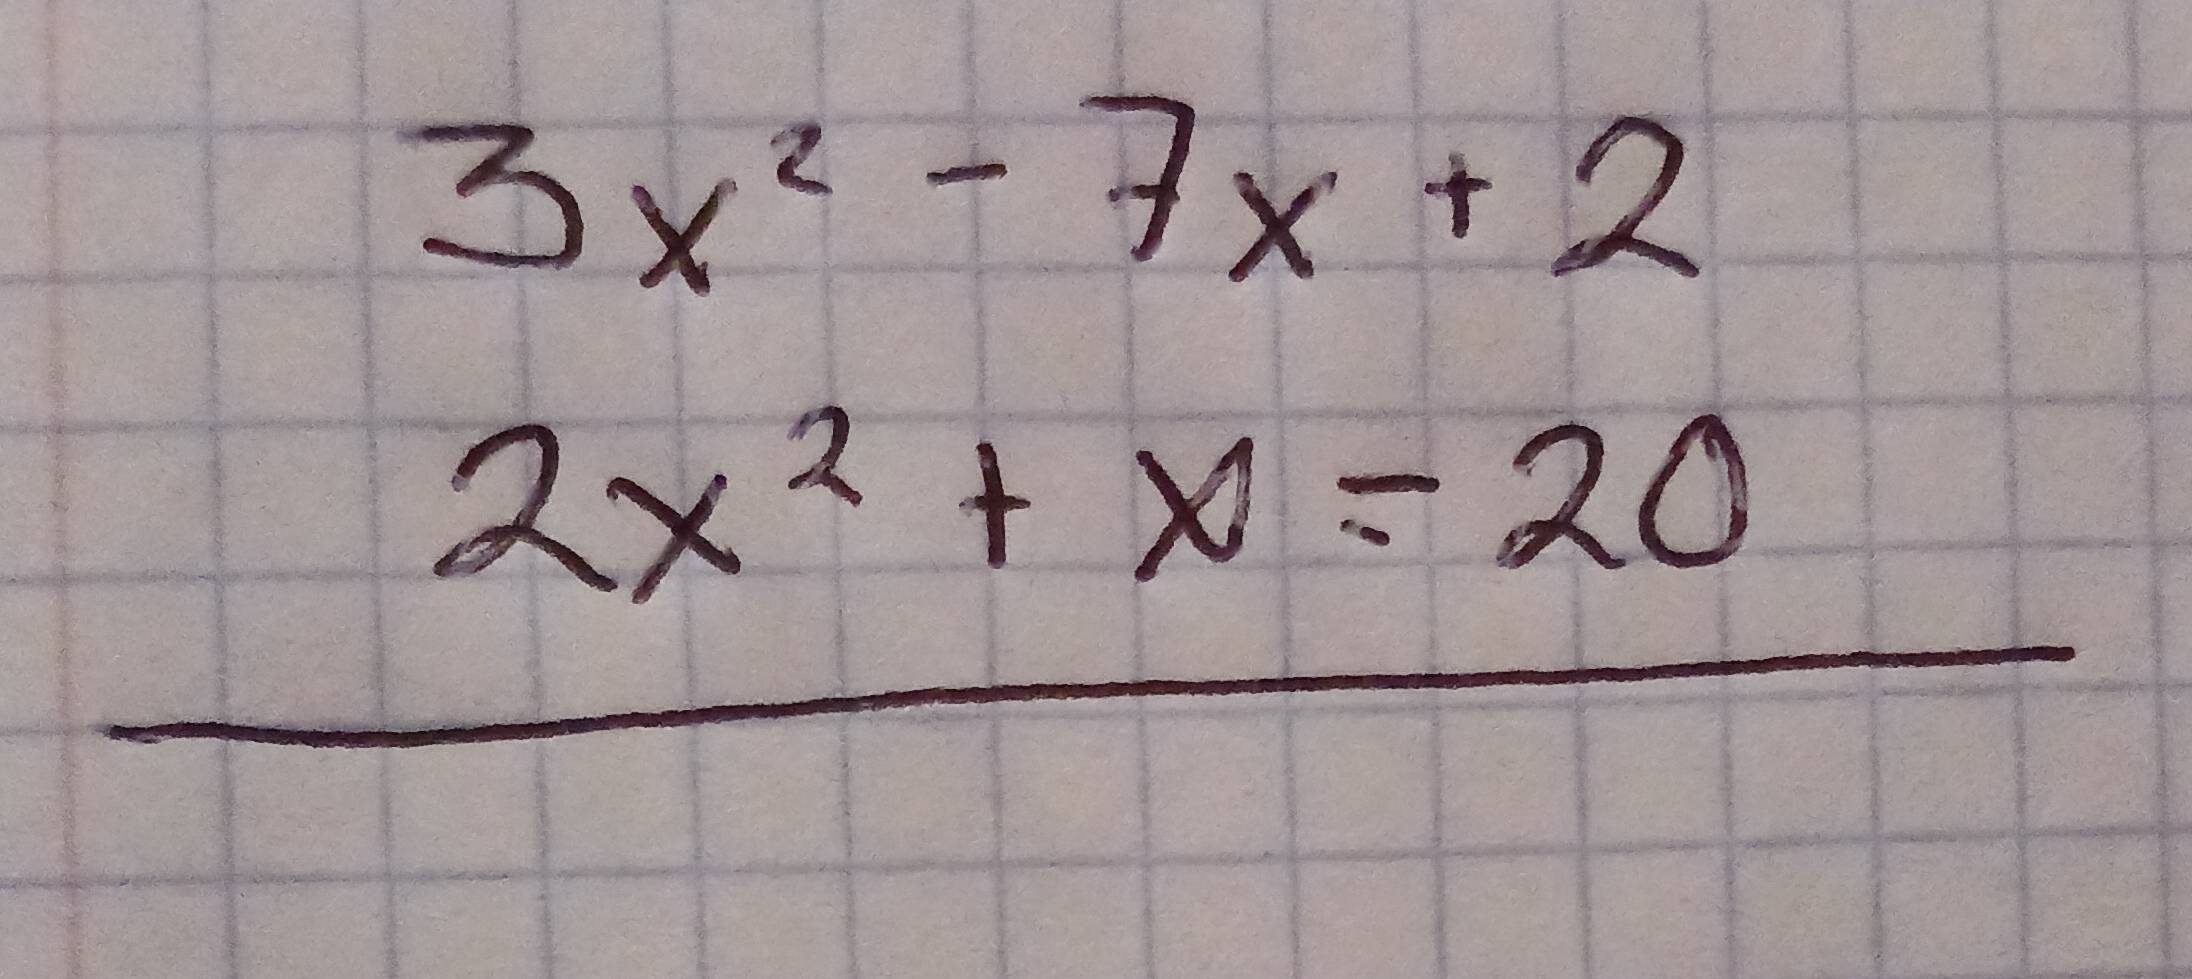 3x² - 7x + 2
2x² + x = 20